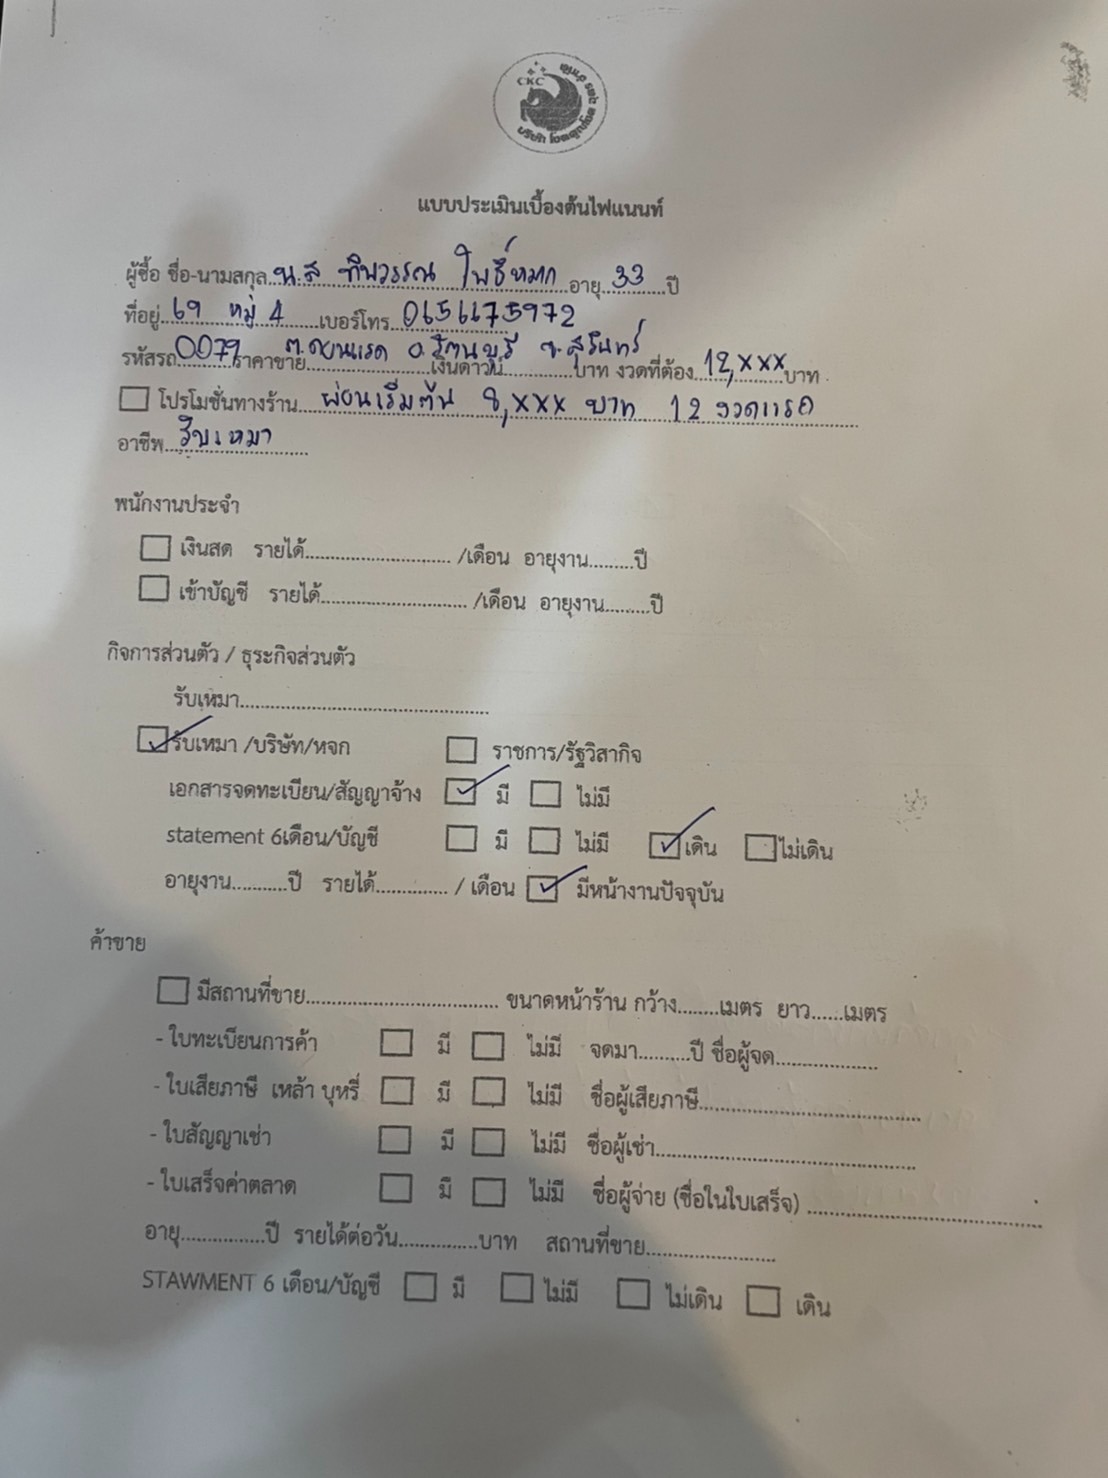 CKC
แบบประเมินเบื้องต้นไฟแนนท์
ผู้ซื้อ ชื่อ-นามสกุล..น.ส ทิพวรรณ โพธิ์หมาก อายุ..33......ปี
ที่อยู่..69 หมู่ 4......เบอร์โทร..0656675972
ต.ดอนแรด อ.รัตนบุรี จ.สุรินทร์
รหัสรถ 0079 ราคาขาย..............เงินดาวน์..........บาท งวดที่ต้อง..12,xxx บาท
☐ โปรโมชั่นทางร้าน...ผ่อนเริ่มต้น 8,xxx บาท 12 งวดแรก
อาชีพ..รับเหมา
พนักงานประจำ
☐ เงินสด รายได้........................../เดือน อายุงาน.........ปี
☐ เข้าบัญชี รายได้........................../เดือน อายุงาน.........ปี
กิจการส่วนตัว / ธุระกิจส่วนตัว
รับเหมา.............................................
☑ รับเหมา /บริษัท/หจก ☐ ราชการ/รัฐวิสากิจ
เอกสารจดทะเบียน/สัญญาจ้าง ☑ มี ☐ ไม่มี
statement 6เดือน/บัญชี ☐ มี ☐ ไม่มี ☑ เดิน ☐ ไม่เดิน
อายุงาน..........ปี รายได้............. / เดือน ☑ มีหน้างานปัจจุบัน
ค้าขาย
☐ มีสถานที่ขาย................................... ขนาดหน้าร้าน กว้าง........เมตร ยาว......เมตร
- ใบทะเบียนการค้า ☐ มี ☐ ไม่มี จดมา..........ปี ชื่อผู้จด...................
- ใบเสียภาษี เหล้า บุหรี่ ☐ มี ☐ ไม่มี ชื่อผู้เสียภาษี........................................
- ใบสัญญาเช่า ☐ มี ☐ ไม่มี ชื่อผู้เช่า................................................
- ใบเสร็จค่าตลาด ☐ มี ☐ ไม่มี ชื่อผู้จ่าย (ชื่อในใบเสร็จ) ..........................................
อายุ...............ปี รายได้ต่อวัน..............บาท สถานที่ขาย.......................
STAWMENT 6 เดือน/บัญชี ☐ มี ☐ ไม่มี ☐ ไม่เดิน ☐ เดิน